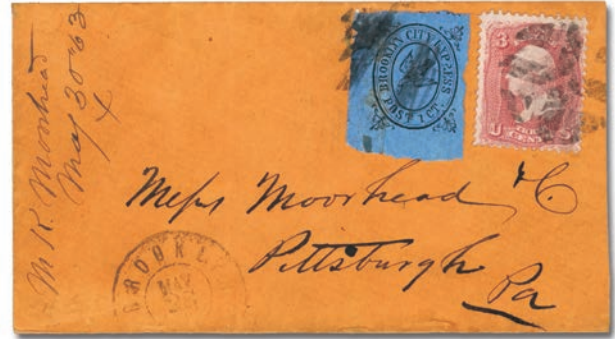 M K Moorhead
May 30 63
BROOKLYN CITY EXPRESS
POST 1 CT.
3
3
U
CENTS
S
Mess Moorhead & C
Pittsburgh
Pa
BROOKL
MAY